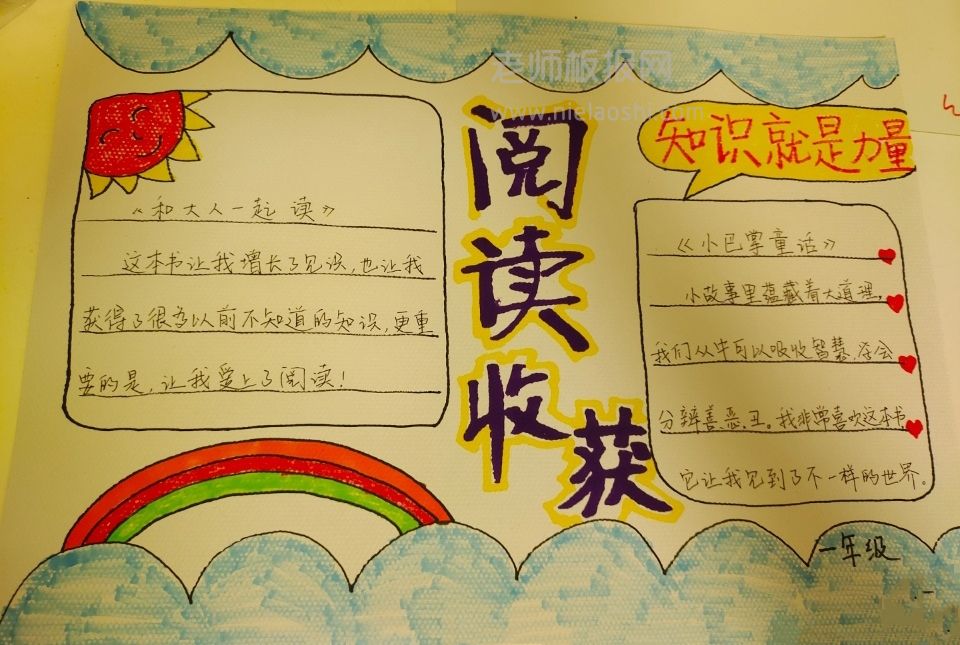 老师板报网
www.nielaoshi.com
阅读收获
知识就是力量
《和大人一起读》
这本书让我增长了见识,也让我
获得了很多以前不知道的知识,更重
要的是,让我爱上了阅读!
《小巴掌童话》
小故事里蕴藏着大道理,
我们从中可以吸收智慧,学会
分辨善恶、丑。我非常喜欢这本书
它让我见到了不一样的世界。
一年级